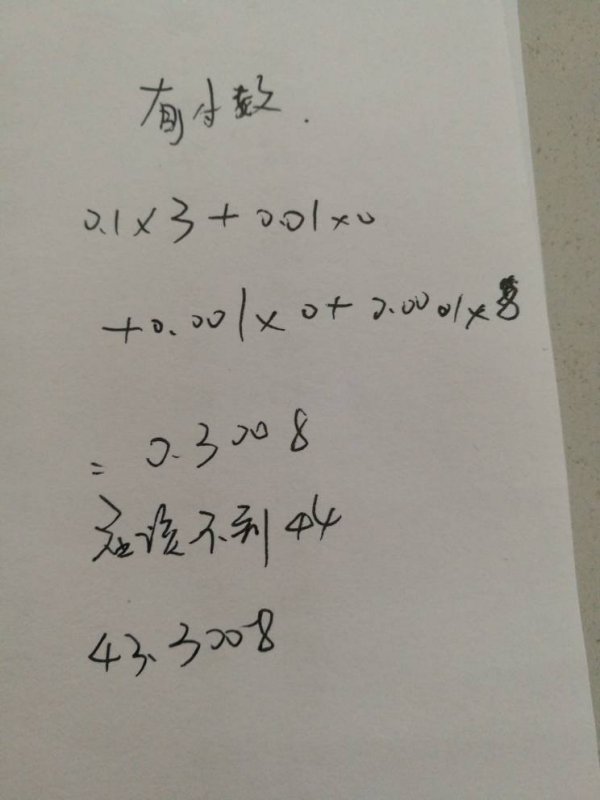 有小数.
0.1×3+0.01×0
+0.001×0+0.0001×8
=0.3008
应该不到44
43.3008